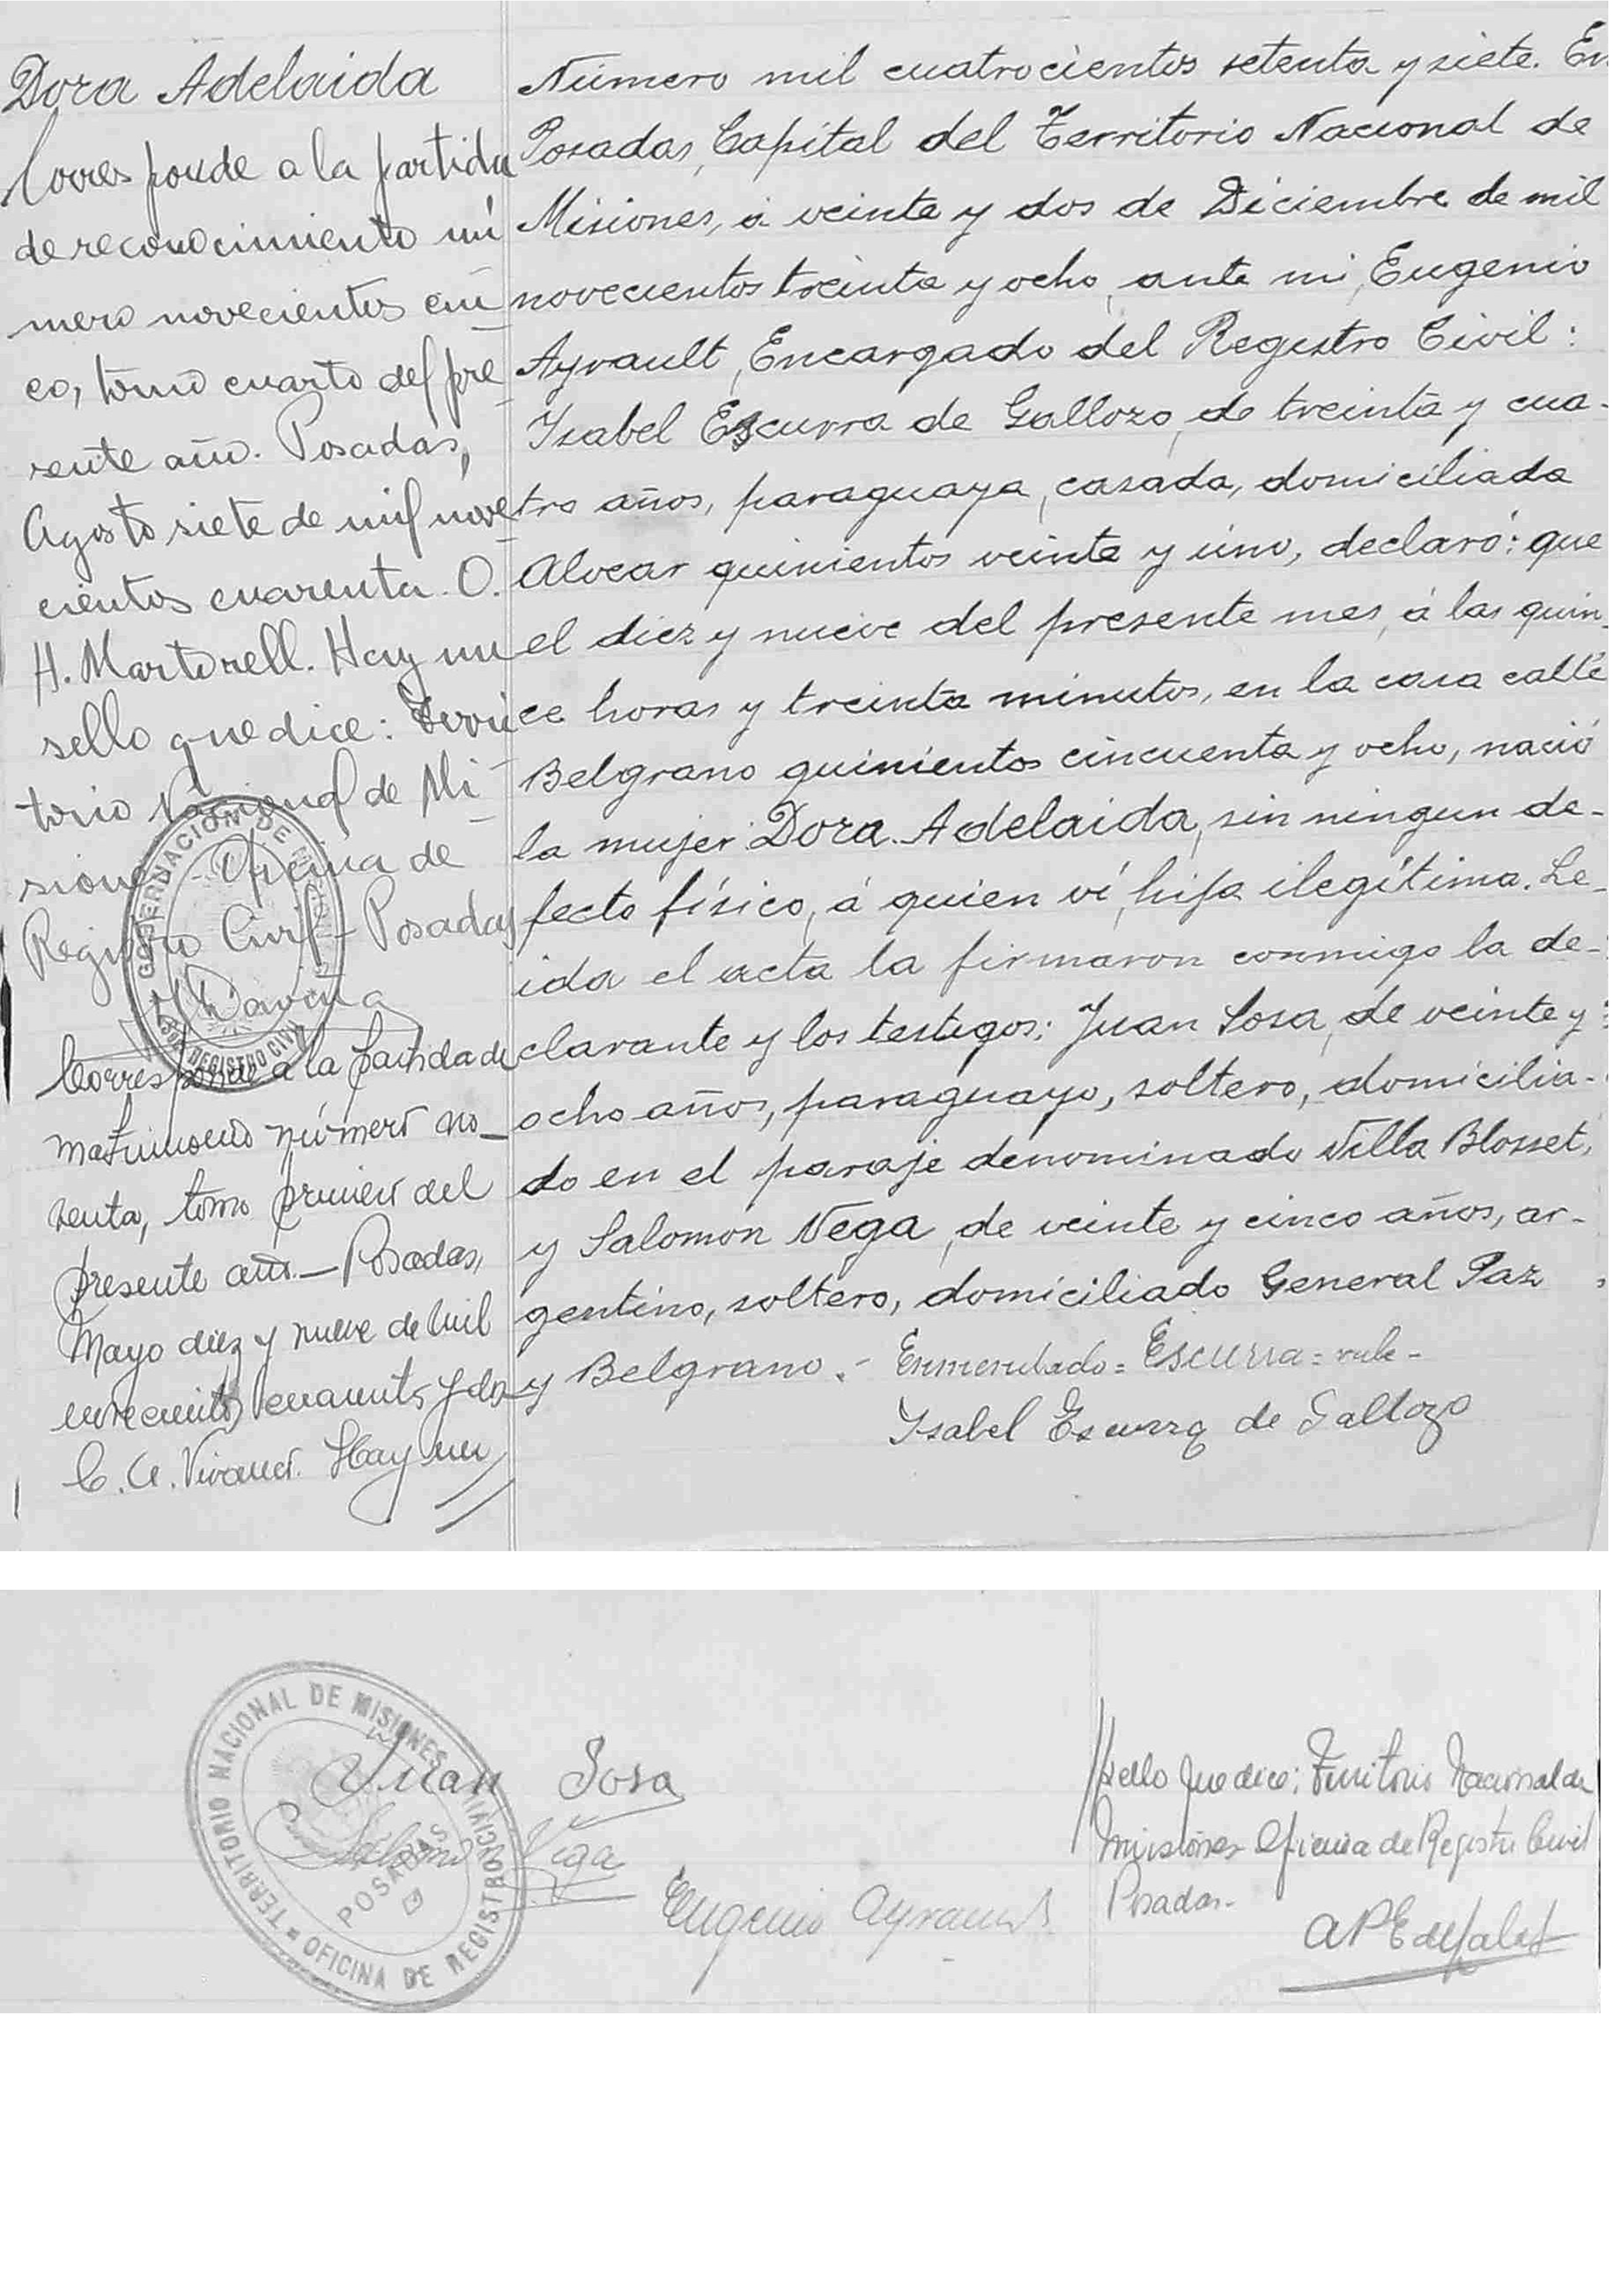 Dora Adelaida
Corresponde a la partida
de reconocimiento nú
mero novecientos cin
co, tomo cuarto del pre
sente año. Posadas,
Agosto siete de mil nove
cientos cuarenta. O.
H. Martorell. Hay un
sello que dice: Terri
torio Nacional de Mi
siones - Oficina de
Registro Civil - Posadas
GOBERNACION DE MISIONES
REGISTRO CIVIL
Corresponde a la partida de
matrimonio número no_
venta, tomo primero del
presente año.- Posadas,
Mayo diez y nueve de mil
novecientos cuarenta y dos
C. A. Hay un
Número mil cuatrocientos setenta y siete. En
Posadas, Capital del Territorio Nacional de
Misiones, á veinte y dos de Diciembre de mil
novecientos treinta y ocho, ante mi, Eugenio
Ayrault, Encargado del Registro Civil:
Isabel Escurra de Gallozo, de treinta y cua-
tro años, paraguaya, casada, domiciliada
Alvear quinientos veinte y úno, declaró: que
el diez y nueve del presente mes, á las quin_
ce horas y treinta minutos, en la casa calle
Belgrano quinientos cincuenta y ocho, nació
la mujer Dora Adelaida, sin ningun de-
fecto físico, á quien ví, hija ilegítima. Le-
ida el acta la firmaron conmigo la de-
clarante y los testigos: Juan Sosa, de veinte y
ocho años, paraguayo, soltero, domicilia-
do en el paraje denominado Villa Blosset,
y Salomon Vega, de veinte y cinco años, ar-
gentino, soltero, domiciliado General Paz
y Belgrano.- Enmendado= Escurra= vale-
Isabel Escurra de Gallozo
TERRITORIO NACIONAL DE MISIONES
OFICINA DE REGISTRO CIVIL
POSADAS
Juan Sosa
Salomon Vega
Eugenio Ayrault
//sello que dice: Territorio Nacional de
Misiones Oficina de Registro Civil
Posadas.-